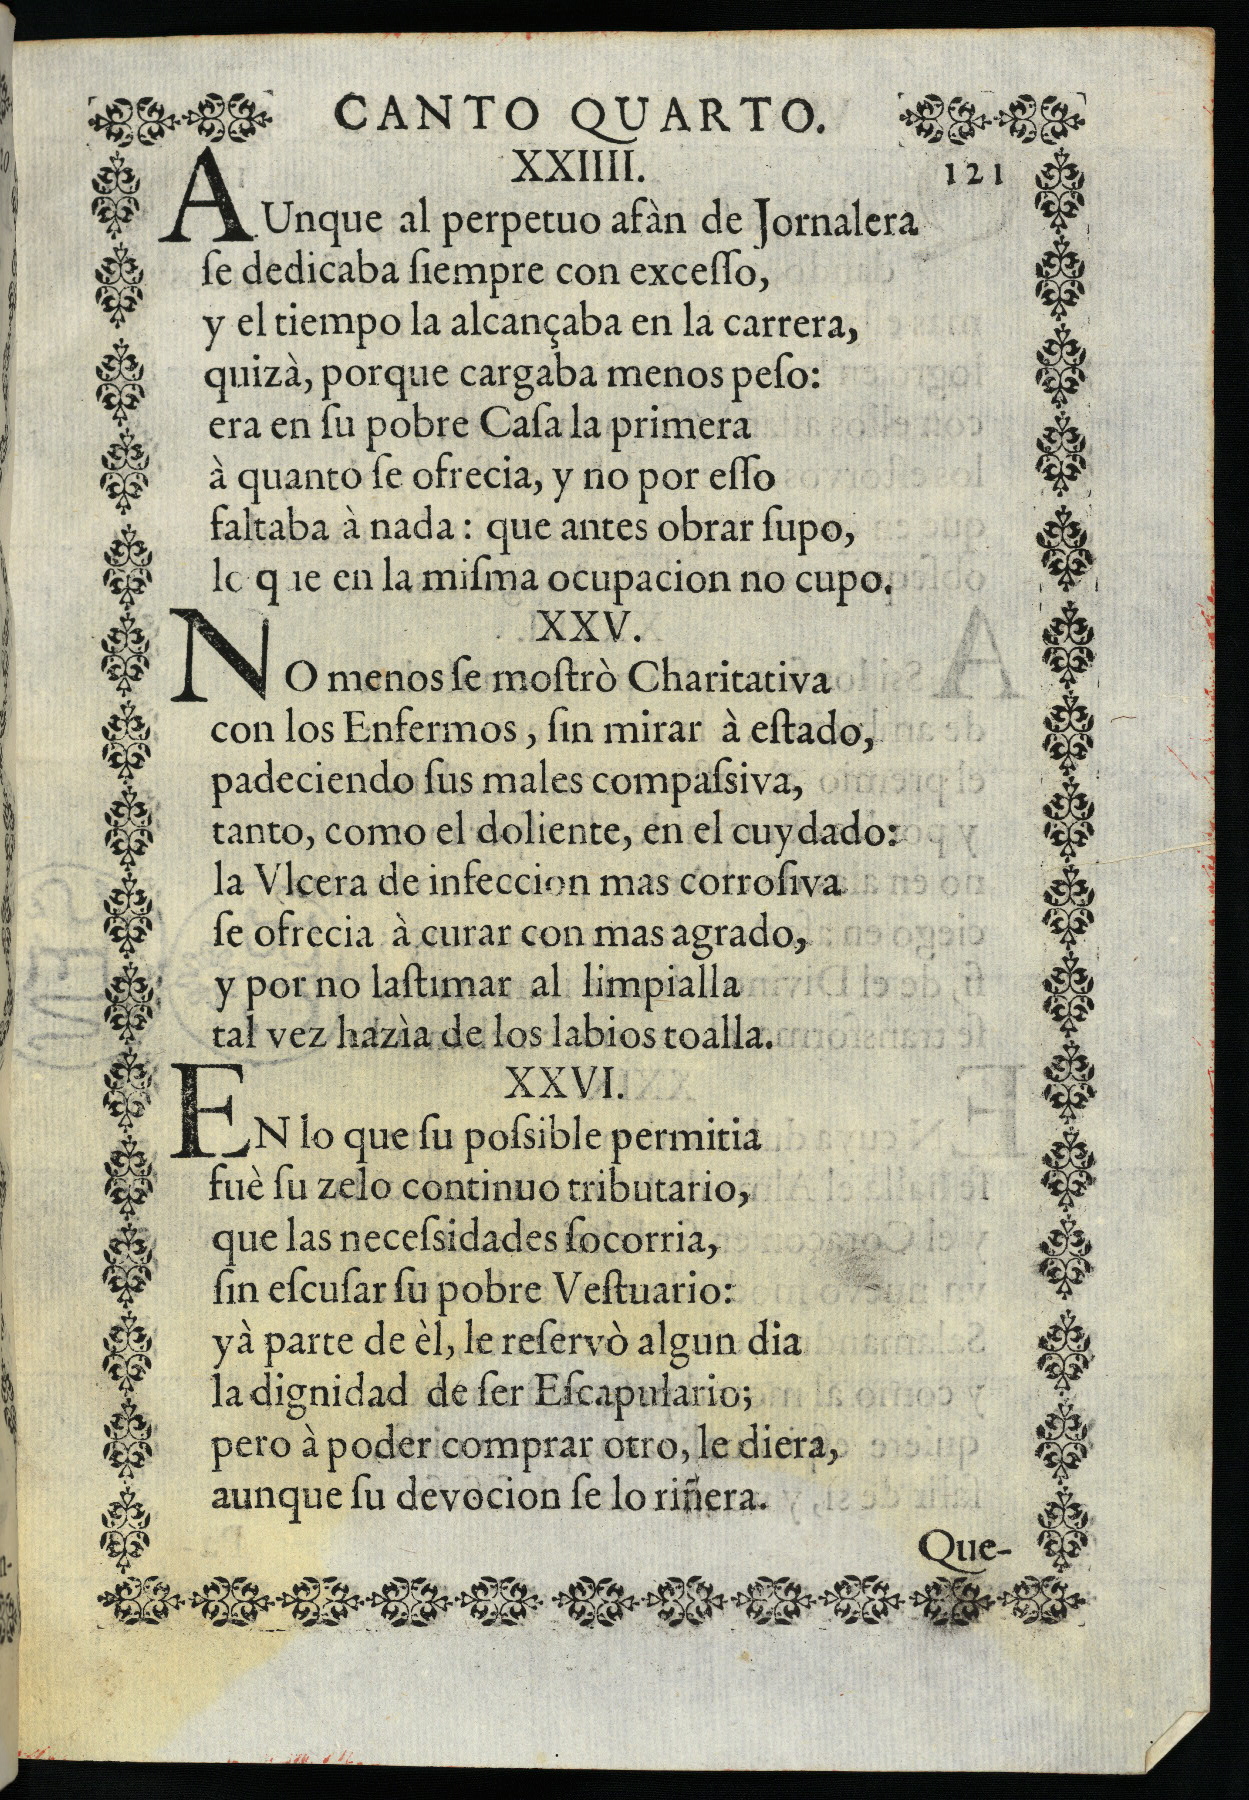 CANTO QUARTO.
XXIIII.
121
AUnque al perpetuo afàn de Jornalera
ſe dedicaba ſiempre con exceſſo,
y el tiempo la alcançaba en la carrera,
quizà, porque cargaba menos peſo:
era en ſu pobre Caſa la primera
à quanto ſe ofrecia, y no por eſſo
faltaba à nada: que antes obrar ſupo,
lo que en la miſma ocupacion no cupo.
XXV.
NO menos ſe moſtrò Charitativa
con los Enfermos, ſin mirar à eſtado,
padeciendo ſus males compaſsiva,
tanto, como el doliente, en el cuydado:
la Vlcera de infeccion mas corroſiva
ſe ofrecia à curar con mas agrado,
y por no laſtimar al limpialla
tal vez hazìa de los labios toalla.
XXVI.
EN lo que ſu poſsible permitia
fuè ſu zelo continuo tributario,
que las neceſsidades ſocorria,
ſin eſcuſar ſu pobre Veſtuario:
yà parte de èl, le reſervò algun dia
la dignidad de ſer Eſcapulario;
pero à poder comprar otro, le diera,
aunque ſu devocion ſe lo riñera.
Que-